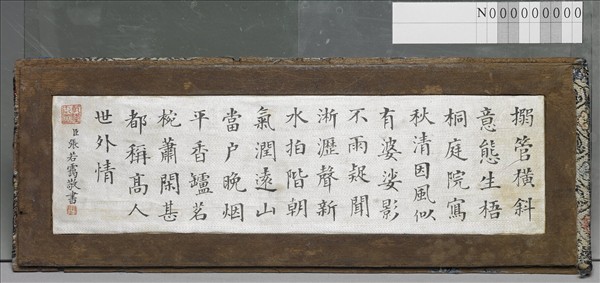 N000000000
搦管橫斜
意態生梧
桐庭院寫
秋清因風似
有婆娑影
不雨疑聞
淅瀝聲新
水拍階朝
氣潤遠山
當户晚烟
平香罏茗
椀蕭閒甚
都稱髙人
世外情
臣張若靄敬書